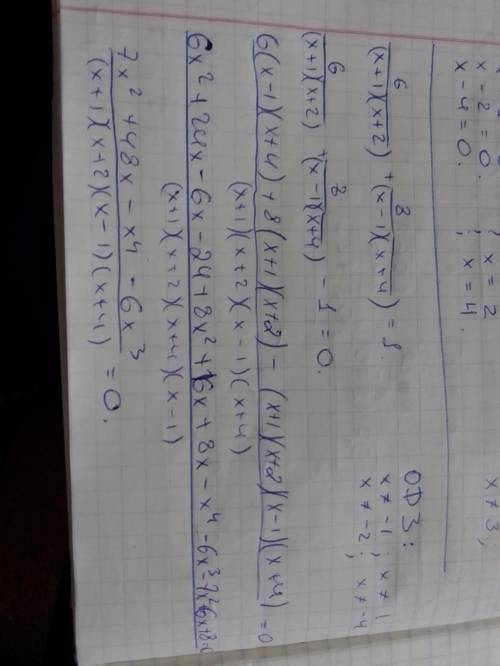 x - 2 = 0. ; x = 2
x - 4 = 0. ; x = 4.
x ≠ 3;
6/((x+1)(x+2)) + 8/((x-1)(x+4)) = 1.
ОДЗ:
x ≠ -1; x ≠ 1
x ≠ -2; x ≠ -4
6/((x+1)(x+2)) + 8/((x-1)(x+4)) - 1 = 0.
6(x-1)(x+4) + 8(x+1)(x+2) - (x+1)(x+2)(x-1)(x+4) = 0
(x+1)(x+2)(x-1)(x+4)
6x² + 24x - 6x - 24 + 8x² + 16x + 8x - x⁴ - 6x³ - 7x² + 6x + 8 =
(x+1)(x+2)(x+4)(x-1)
7x² + 48x - x⁴ - 6x³
(x+1)(x+2)(x-1)(x+4) = 0.